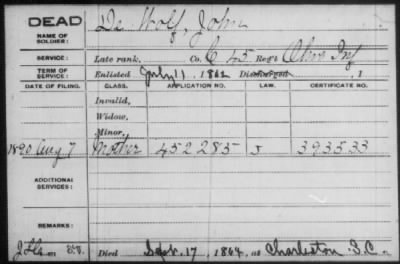 DEAD De Wolf, John
NAME OF SOLDIER:
SERVICE: Late rank, Co. C 45 Reg't Ohio Inf
TERM OF SERVICE: Enlisted July 11, 1862 Discharged , 1
DATE OF FILING. CLASS. APPLICATION NO. LAW. CERTIFICATE NO.
Invalid,
Widow,
Minor,
1890 Aug 7 Mother 452285 J 393533
ADDITIONAL SERVICES:
REMARKS:
Died Sept. 17, 1864, at Charleston S.C.